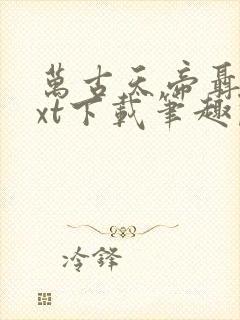 萬古天帝聶
xt下載筆趣
冷鋒